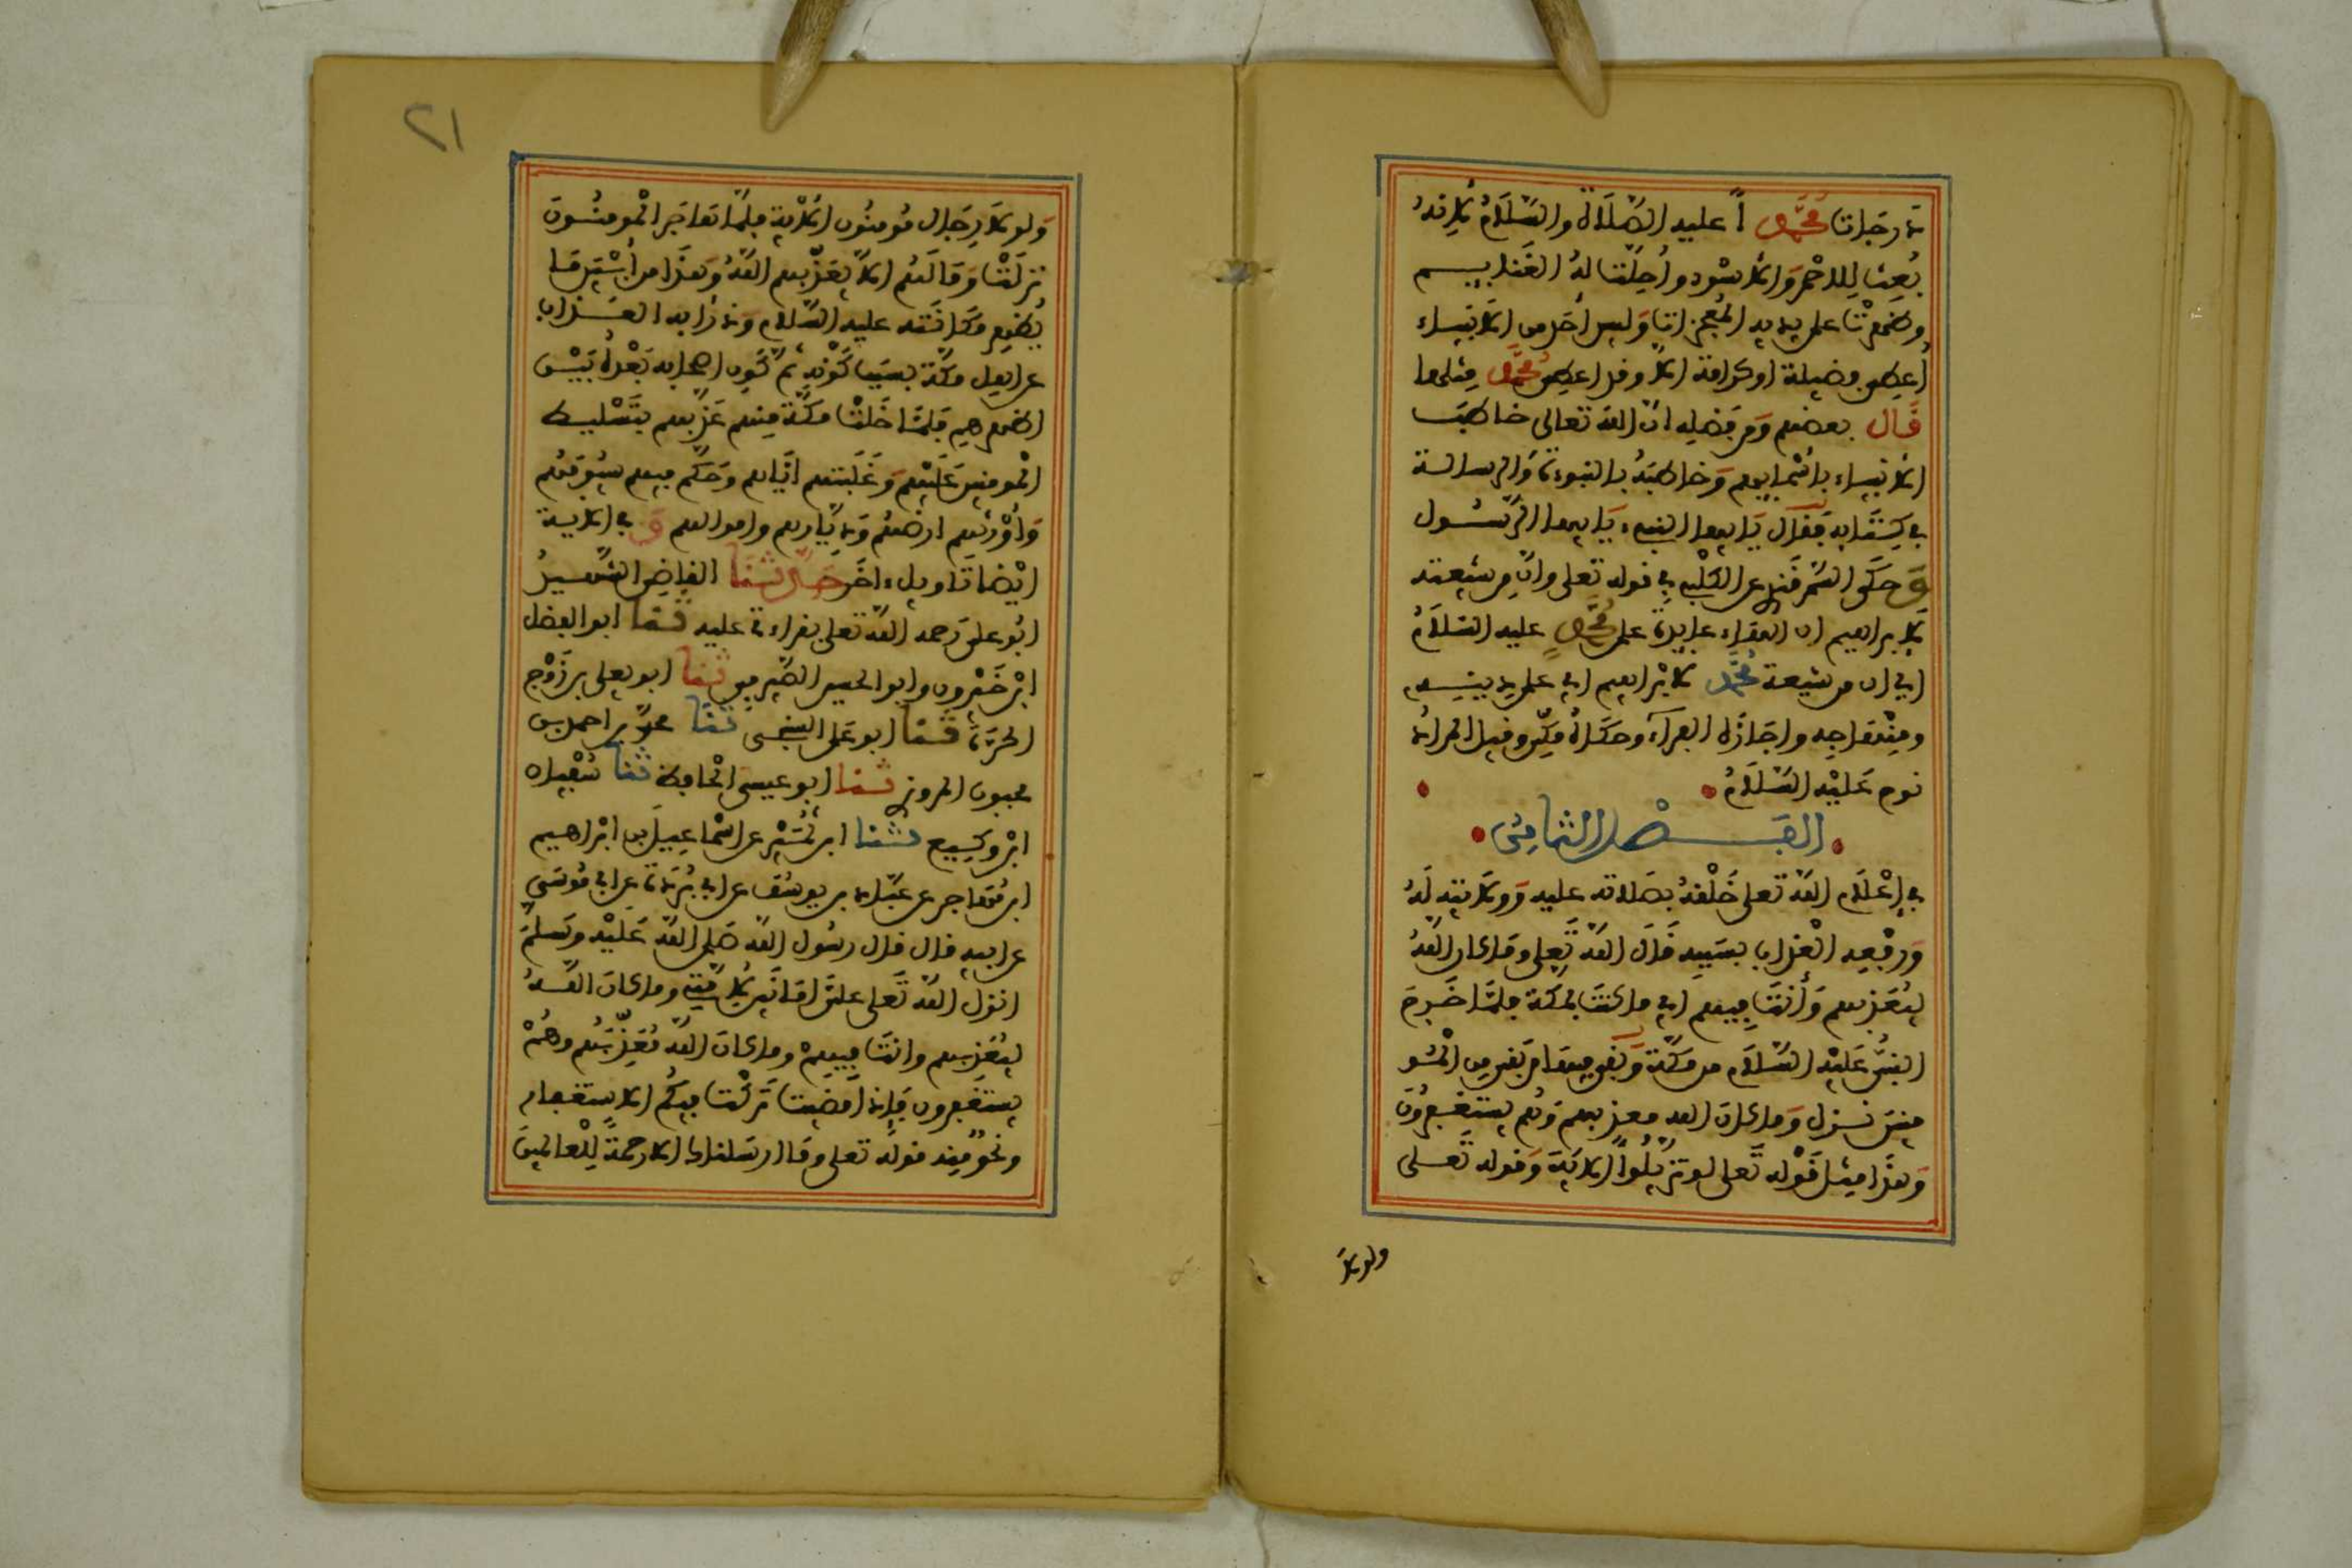 درجات محمدا عليه الصلاة والسلام لانه
بعث للاحمر والاسود واحلت له الغنايم
وظهرت على يديه المعجزات وليس احد من الانبياء
اعطي فضيلة او كرامة الا وقد اعطي محمد مثلها
قال بعضهم ومن فضله ان الله تعالى خاطب
الانبياء باسمايهم وخاطبه بالنبوءة والرسالة
في كتابه فقال يايها النبيء يايها الرسول
وحكى السمرقندي عن الكلبي في قوله تعلى وان من شيعته
لابراهيم ان الهاء عايدة على محمد عليه السلام
اي ان من شيعة محمد لابراهيم اي على دينه
ومنهاجه واجازه الفراء وحكاه مكي وقيل المراد
نوح عليه السلام
الفصل الثامن
في اعلام الله تعلى خلقه بصلاته عليه وولايته له
ورفعه العذاب بسببه قال الله تعلى وما كان الله
ليعذبهم وأنت فيهم اي ما كنت بمكة فلما خرج
النبي عليه السلام من مكة وبقي فيها من بقي من المو
منين نزل وما كان الله معذبهم وهم يستغفرون
وهذا مثل قوله تعلى لو تزيلوا الاية وقوله تعلى
ولولا
٢١
ولولا رجال مومنون الاية فلما هاجر المومنون
نزلت وما لهم الا يعذبهم الله وهذا من ابين ما
يظهر مكانته عليه السلام ودرأ به العذاب
عن اهل مكة بسبب كونه ثم كون اصحابه بعده بين
اظهرهم فلما خلت مكة منهم عذبهم بتسليط
المومنين عليهم وغلبتهم اياهم وحكم فيهم سيوفهم
وأورثهم ارضهم وديارهم واموالهم و في الاية
ايضا تاويل ءاخر حدثنا القاضي الشهيد
ابو علي رحمه الله تعلى بقراءتي عليه ثنا ابو الفضل
ابن خيرون وابو الحسين الصيرفي ثنا ابو يعلى بن زوج
الحرة ثنا ابو علي السنجي ثنا محمد بن احمد بن
محبوب المروزي ثنا ابو عيسى الحافظ ثنا سفيان
ابن وكيع ثنا ابن نمير عن اسماعيل بن ابراهيم
ابن مهاجر عن عباد بن يوسف عن ابي بردة عن ابي موسى
عن ابيه قال قال رسول الله صلى الله عليه وسلم
انزل الله تعلى علي امانين لامتي وما كان الله
ليعذبهم وانت فيهم وما كان الله معذبهم وهم
يستغفرون فاذا مضيت تركت فيكم الاستغفار
ونحو منه قوله تعلى وما ارسلناك الا رحمة للعالمين